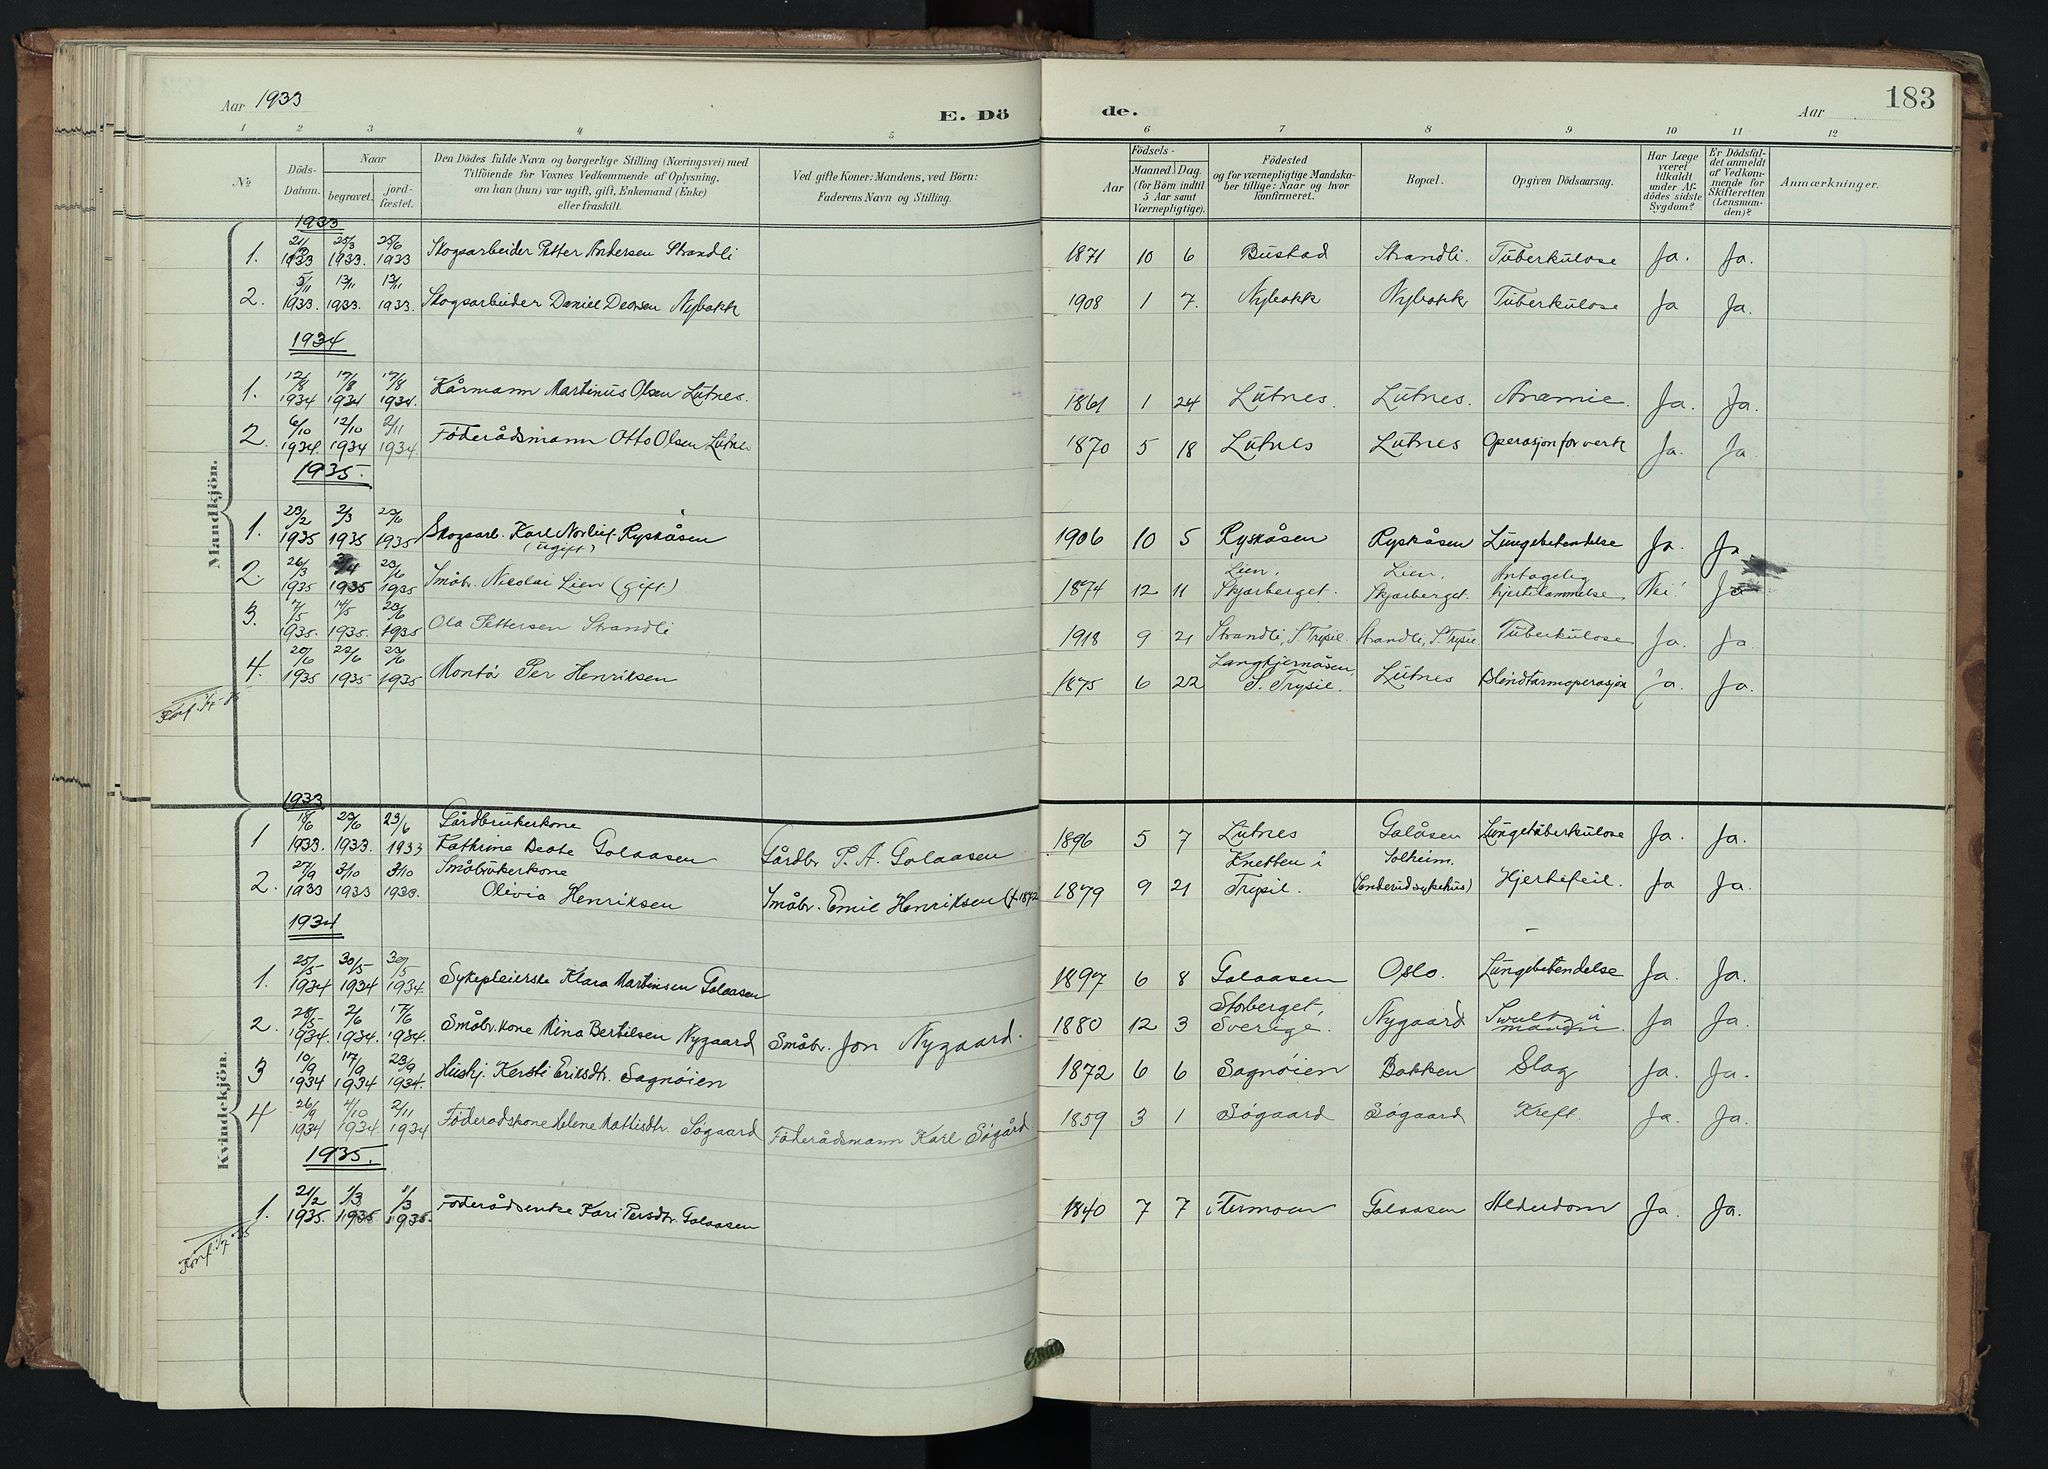 Aar 1933
E. Dö de.
Aar
183
1 2 3 4 5 6 7 8 9 10 11 12
No.
Döds-Datum.
Naar
begravet.
jord-fæstet.
Den Dödes fulde Navn og borgerlige Stilling (Næringsvei) med
Tilföiende for Voxnes Vedkommende af Oplysning,
om han (hun) var ugift, gift, Enkemand (Enke)
eller fraskilt.
Ved gifte Koner: Mandens, ved Börn:
Faderens Navn og Stilling.
Födsels-
Aar
Maaned. Dag.
(for Börn indtil
5 Aar samt
Værnepligtige).
Födested
og for værnepligtige Mandska-
ber tillige: Naar og hvor
konfirmeret.
Bopæl.
Opgiven Dödsaarsag.
Har Læge
været
tilkaldt
under Af-
dödes sidste
Sygdom?
Er Dödsfal-
det anmeldt
af Vedkom-
mende for
Skifteretten
(Lensman-
den)?
Anmærkninger.
Mandkjön.
1933
1. 21/3 1933 25/3 1933. 25/6 1933 Skogsarbeider Petter Andersen Strandli 1871 10 6 Bustad Strandli. Tuberkulose Ja. Ja.
2. 5/11 1933. 13/11 1933. 13/11 1933. Skogsarbeider Daniel Nybakk 1908 1 7. Nybakk Nybakk Tuberkulose Ja Ja.
1934
1. 12/8 1934 17/8 1934 17/8 1934. Kårmann Martinus Olsen Lutnes. 1861 1 24 Lutnes. Lutnes. Anæmie. Ja. Ja.
2. 6/10 1934. 12/10 1934 2/11 1934. Föderådsmann Otto Olsen Lutnes 1870 5 18 Lutnes Lutnes Operasjon for verk Ja. Ja.
1935.
1. 23/2 1935 2/3 1935 23/6 1935 Skogsarb. Karl Norleif Ryskåsen
(ugift)
1906 10 5 Ryskåsen Ryskåsen Lungebetendelse Ja. Ja
2. 26/3 1935 1935 23/6 1935 Småbr. Nicolai Lien (gift) 1874 12 11 Lien, Skjærberget. Lien, Skjærberget. Antagelig hjertelammelse Nei! Ja
3. 7/5 1935. 14/5 1935. 23/6 1935 Ola Pettersen Strandli 1918 9 21 Strandli, S. Trysil. Strandli, S. Trysil Tuberkulose Ja. Ja.
4. 20/6 1935 22/6 1935 23/6 1935 Montö Per Henriksen 1875 6 22 Langtjernåsen, S. Trysil. Lutnes Blindtarmoperasjon Ja. Ja.
Konf. 1/7-35
Kvindekjön.
1933
1 18/6 1933. 23/6 1933. 23/6 1933 Gårdbrukerkone
Kathrine Beate Golaasen Gårdbr. P. A. Golaasen 1896 5 7 Lutnes Galåsen Lungetuberkulose Ja. Ja.
2. 27/9 1933 3/10 1933 3/10 1933. Småbrukerkone
Olivia Henriksen Småbr. Emil Henriksen (f. 1872 1879 9 21 Knetten i Trysil. Solheim. Hjertefeil. Ja Ja.
1934
1. 25/5 1934 30/5 1934 30/5 1934. Sykepleierske Klara Martinsen Galaasen 1897 6 8 Galaasen Oslo. Lungebetendelse Ja. Ja.
2. 28/5 1934. 2/6 1934. 17/6 1934. Småbr. kone Mina Bertilsen Nygaard Småbr. Jon Nygaard. 1880 12 3 Stöberget, Sverige. Nygaard Svulst i maven. Ja Ja
3 10/9 1934 17/9 1934 23/9 1934. Hushj. Kersti Eriksdtr. Sagnöien 1872 6 6 Sagnöien Bakken Slag Ja. Ja.
4 26/9 1934 4/10 1934. 2/11 1934 Föderådskone Helene Mattisdtr. Søgaard Föderådsmann Karl Søgård 1859 3 1 Søgaard Søgaard Kreft. Ja. Ja.
1935.
1. 21/2 1935. 1/3 1935 1/3 1935. Föderådsenke Kari Persdtr. Galaasen 1840 7 7 i Termoen Galaasen Alderdom Ja. Ja.
Konf. 1/7-35